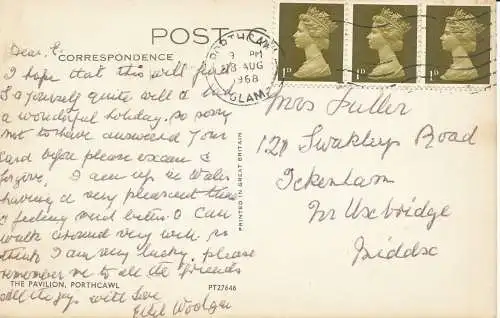 POST
CORRESPONDENCE
Dear E.
I hope that this will find
yourself quite well & had
a wonderful holiday. So sorry
not to have answered your
card before please excuse &
forgive. I am up in Wales
having a very pleasent time
& feeling much better. I can
walk around very well so
think I am very lucky. please
remember me to all the friends
all the joys with love
Ethel
THE PAVILION, PORTHCAWL
PT27646
PRINTED IN GREAT BRITAIN
PORTHCAWL
PM
AUG
1968
GLAM
1D
1D
1D
Mrs Fuller
Swakleys Road
Ickenham
Nr Uxbridge
Middsx